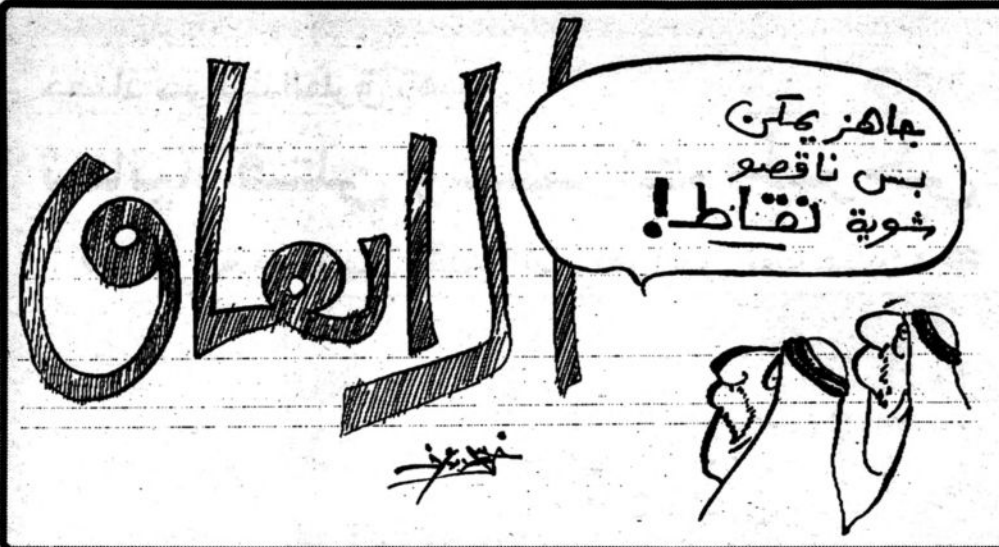 جاهز يمكن
بس ناقصو
شوية نقاط!
الاٮڡاٯ